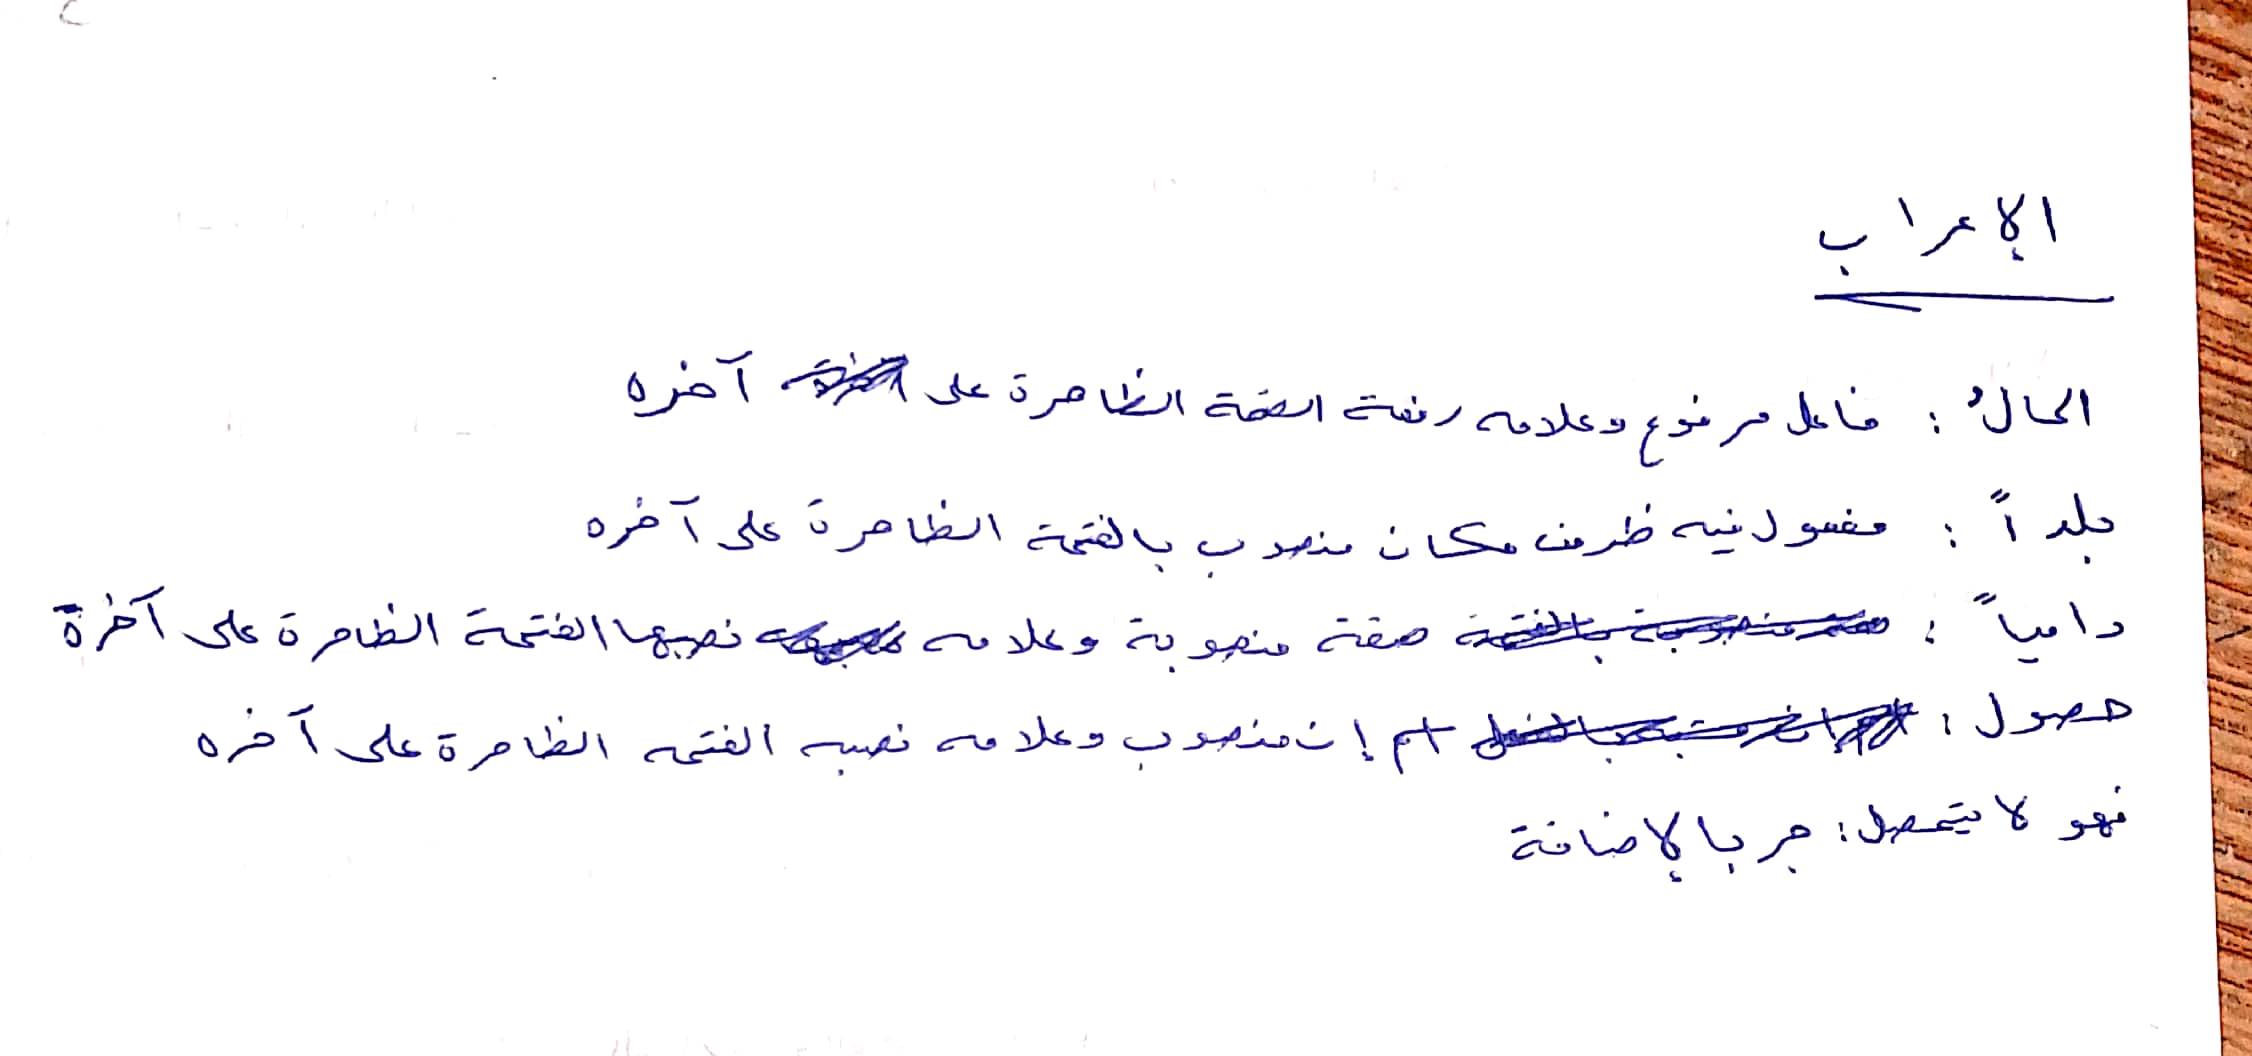 الإعراب
الحالُ : فاعل مرفوع وعلامه رفعة الضمة الظاهرة على آخره
بلداً : مفعول فيه ظرف مكان منصوب بالفتحة الظاهرة على آخره
دامياً : صفة منصوبة وعلامه نصبها الفتحة الظاهرة على آخرة
حصول : اسم إن منصوب وعلامه نصبه الفتحه الظاهرة على آخره
فهو لا يتحصل : جر بالإضافة